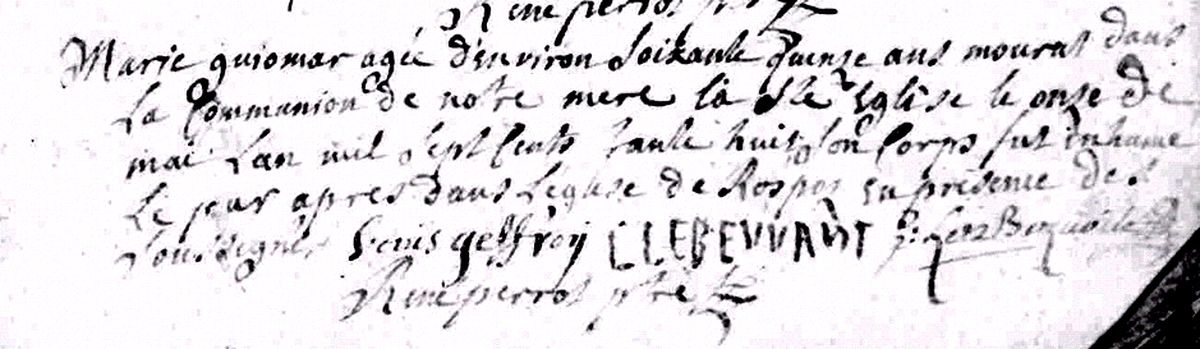 René perrot ptre
Marie quiomar agée d'environ Soixante quinse ans mourut dans
La Communion de notre mere la Ste Eglise le onse de
mai Lan mil Sept Cents tante huit Son Corps fut inhumé
Le jour apres dans Léglise de Rospez en présence des
Soussignés Louis geffroy CLLEBEVVANT
René perrot ptre